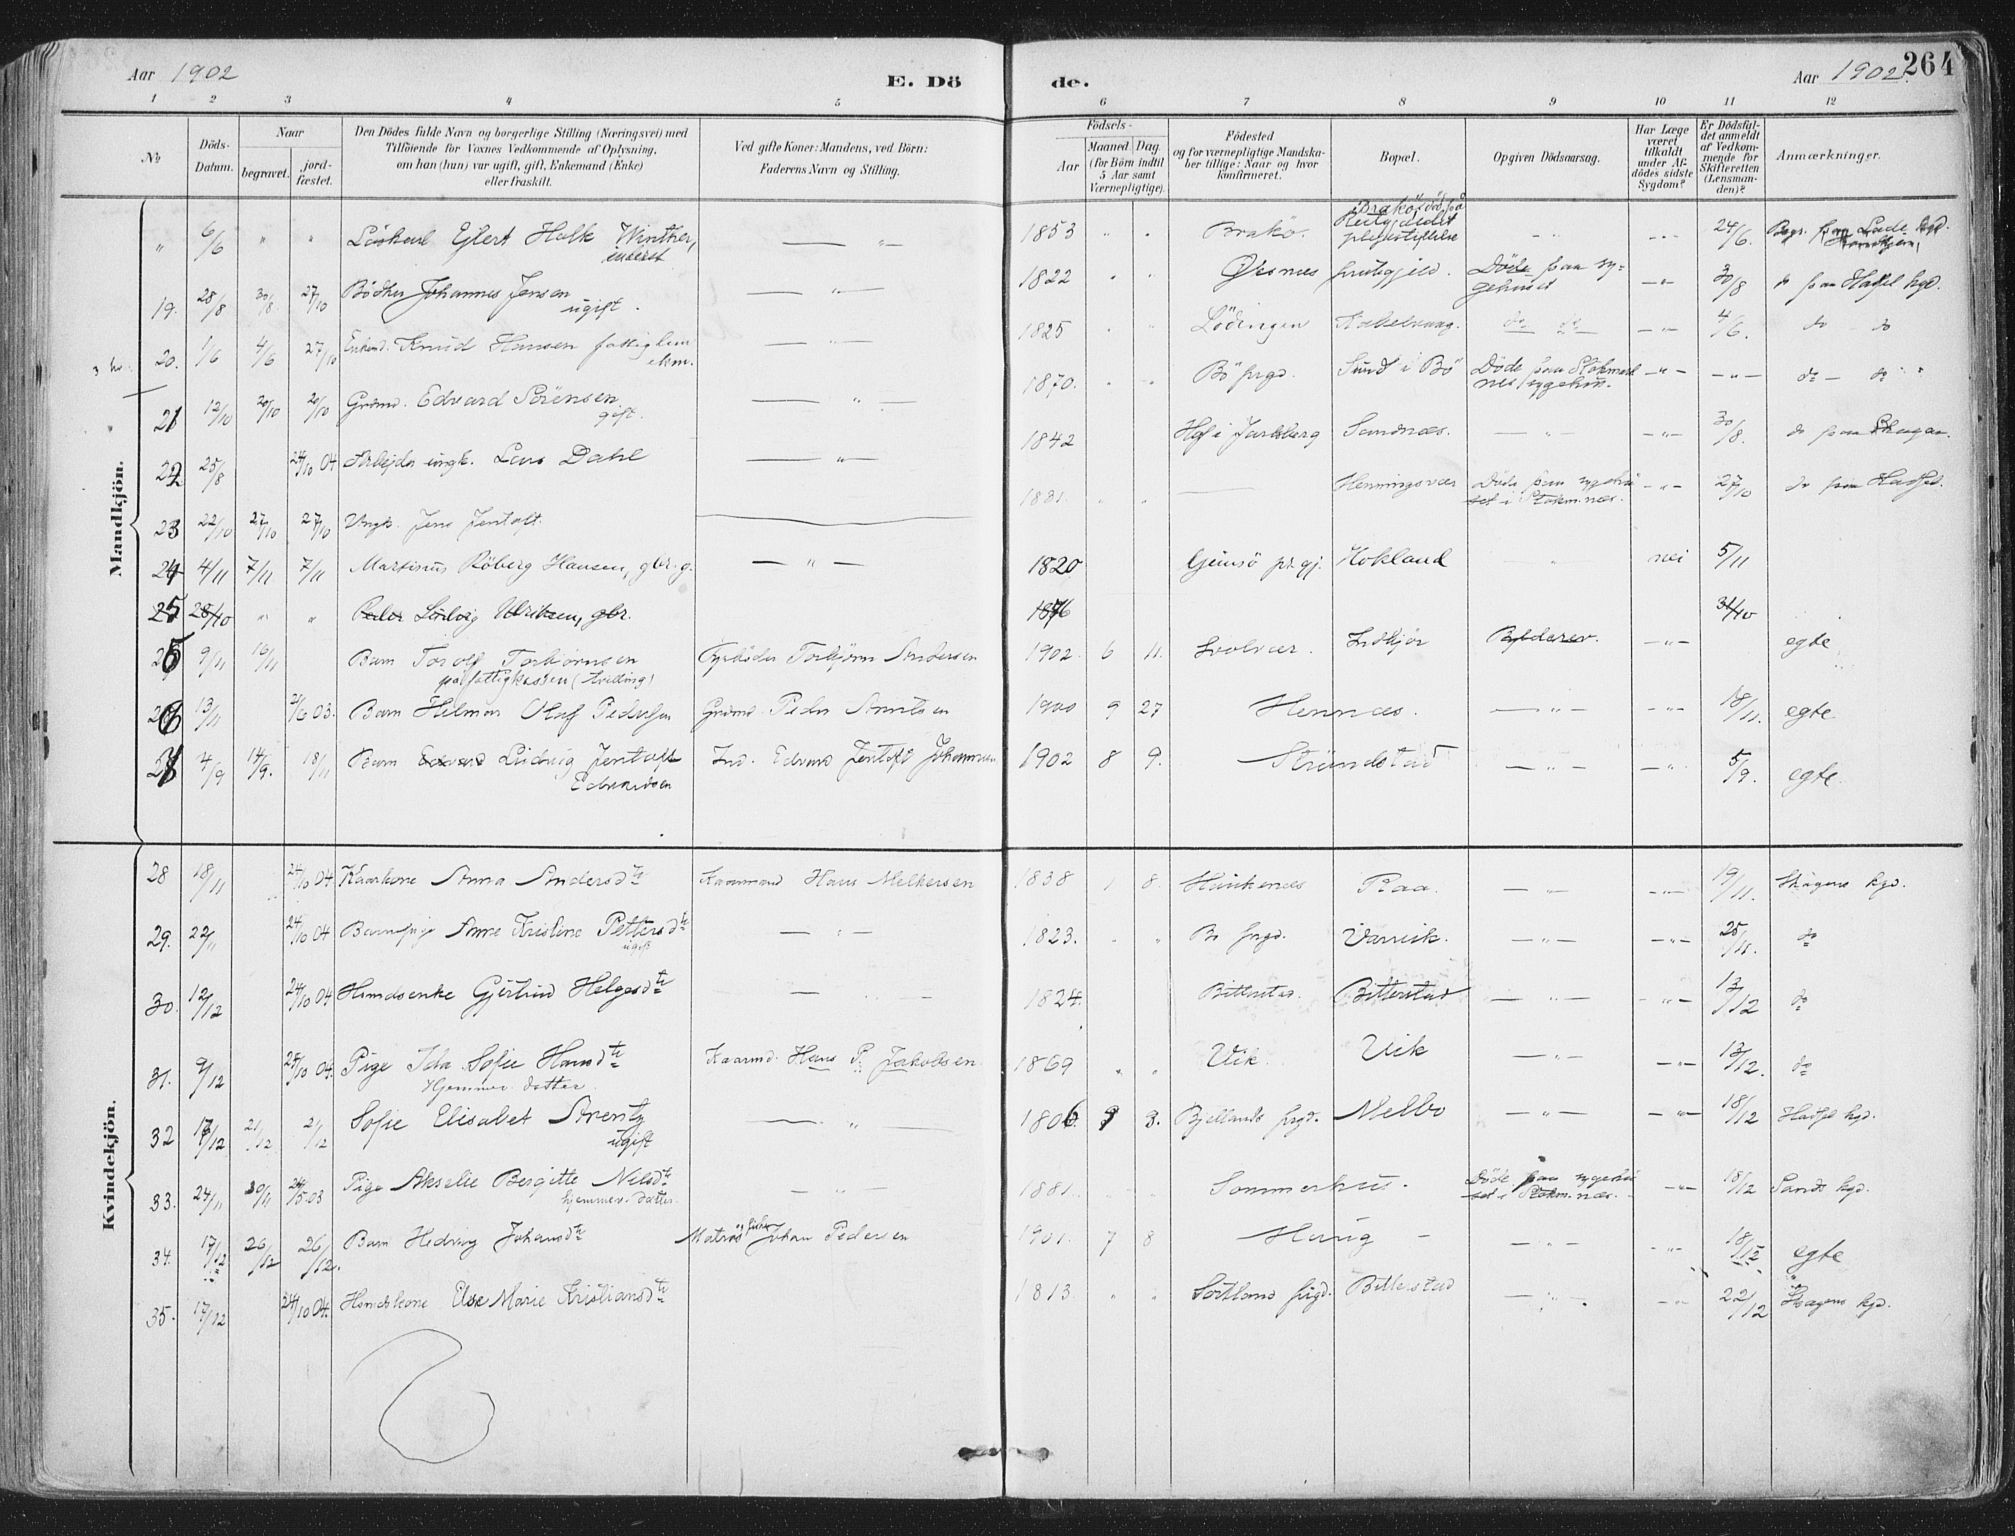 Aar 1902
E. Dö
de.
Aar 1902.
264
1 2 3 4 5 6 7 8 9 10 11 12
No
Döds-Datum.
Naar
begravet.
jord-fæstet.
Den Dödes fulde Navn og borgerlige Stilling (Næringsvei) med
Tilföiende for Voxnes Vedkommende af Oplysning,
om han (hun) var ugift, gift, Enkemand (Enke)
eller fraskilt.
Ved gifte Koner: Mandens, ved Börn:
Faderens Navn og Stilling.
Födsels-
Aar
Maaned. Dag.
(for Börn indtil
5 Aar samt
Værnepligtige).
Födested
og for værnepligtige Mandska-
ber tillige: Naar og hvor
konfirmeret.
Bopæl.
Opgiven Dödsaarsag.
Har Læge
været
tilkaldt
under Af-
dödes sidste
Sygdom?
Er Dödsfal-
det anmeldt
af Vedkom-
mende for
Skifteretten
(Lensman-
den)?
Anmærkninger.
Mandkjön.
" 6/6 " " Ejlert Holk Winther, — " — 1853 " " Brakö. 24/6.
19. 28/8 30/8 27/10 Bödker Johannes Jensen ugift. — " — 1822 " " Öxnes prestegjeld. Döde paa sy-gehuset — " — 30/8 do paa Hadsel kgd.
20. 1/6 4/6 27/10 Knud Hansen — " — 1825 " " Lödingen Kabelvaag. do do — " — 4/6. do do
21 12/10 20/10 20/10 Grdmd. Edvard Sörensen gift. — " — 1870. " " Bö prgd. Sund i Bö Döde paa Stokmarknes sygehus. — " — — " — do — do
22 25/8 24/10 04 Arbejder ungk. Lars Dahl — " — 1842 Hof i Jarlsberg Sandnæs. — " — — " — 30/8. do paa Skagen.
23 22/10 27/10 27/10 Ungk. Jens Jentoft. 1831. " " Henningsvær Döde paa sygehu-set i Stokm.næs. — " — 27/10 do paa Hadsel.
24 4/11 7/11 7/11 Martinus Röberg Hansen, gbr. g. — " — 1820 Gimsö pr.gj. Hokland " nei 5/11
25 28/10 " " Peder Ludvig Ulriksen, gbr. 1876 31/10
25 9/11 16/11 Barn Torolf Torbjörnsen på fattigkassen (Tvilling) Torbjörn Andersen 1902. 6 11. Svolvær. — " — egte
26 13/11 2/6 03. Barn Hilmar Olaf Pedersen Grdmd. Peder Arntsen 1900 9 27 Hennes. — " — — " — 18/11. egte
27 4/9 14/9. 18/11 Barn Edvard Ludvig Jentoft Edvardsen Ind. Edvard Jentoft Johannesen 1902 8 9. Strandstad — " — — " — 5/9. egte
Kvindekjön.
28 18/11 24/10 04 Kaarkone Anna Andersdtr Kaarmand Hans Melkersen 1838 1 8. Haukenes Raa. — " — — " — 19/11. Skagens kgd.
29. 22/11 24/10 04 Anne Kristine Pettersdtr ugift — " — 1823. " " Bö prgd. Varvik. — " — — " — 25/11. do
30. 12/12 24/10 04 Husmdsenke Gjertrud Helgesdtr — — 1824. Bitterstad. Bitterstad — " — — " — 13/12 do
31. 9/12 24/10 04. Pige Ida Sofie Hansdtr Hjemmev. datter. Kaarmd. Hans P. Jakobsen. 1869 " " Vik. Vik — " — — " — 13/12. do
32 17/12 21/12 21/12 Sofie Elisabet Arentz ugift — " — 1806. 9 3. Bjellands prgd. Melbo — " — — " — 18/12 Hadsel kgd.
33. 24/11 30/11 24/5 03 Pige Akselie Bergitte Nilsdtr hjemmev. datter. — " — 1881. Sommerhus. Döde paa sygehu-set i Stokm.næs. — " — 18/12 Sands kgd.
34. 17/12 26/12 26/12. Barn Hedvig Johansdtr Matros og fisker Johan Pedersen 1901. 7 8 Haug — — " — — " — 18/12 egte
35. 17/12 24/10 04. Husmdskone Else Marie Kristiansdtr 1813. " " Sortland prgd. Bitterstad — " — — " — 22/12 Skagens kgd.